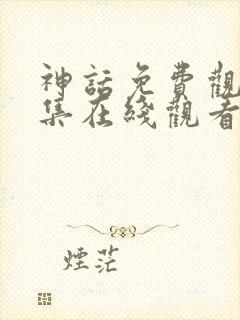 神話免費觀
集在綫觀看
煙茫